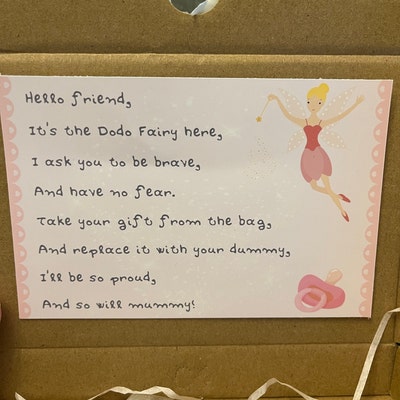 Hello friend,
It's the Dodo Fairy here,
I ask you to be brave,
And have no fear.
Take your gift from the bag,
And replace it with your dummy,
I'll be so proud,
And so will mummy!